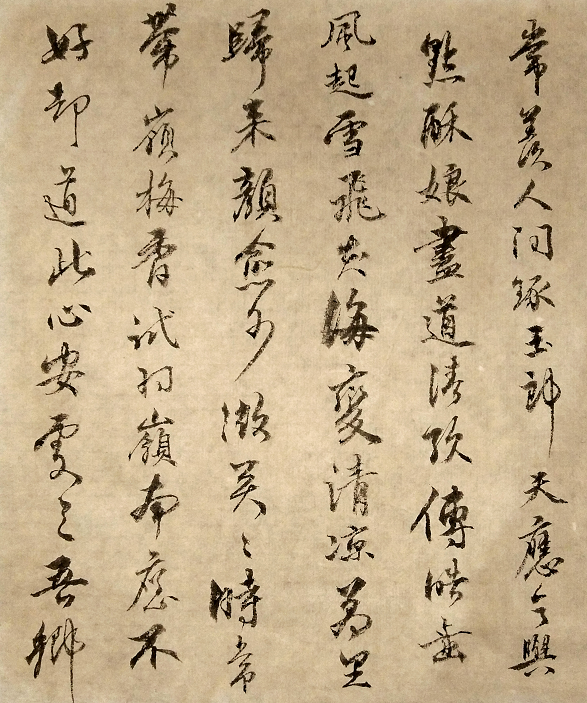 常羨人间琢玉郎天應乞與
點酥娘盡道清歌傳皓齒
風起雪飛炎海變清凉萬里
歸来顔愈少微笑〻時常
帶嶺梅香試問嶺南應不
好却道此心安處是吾鄉